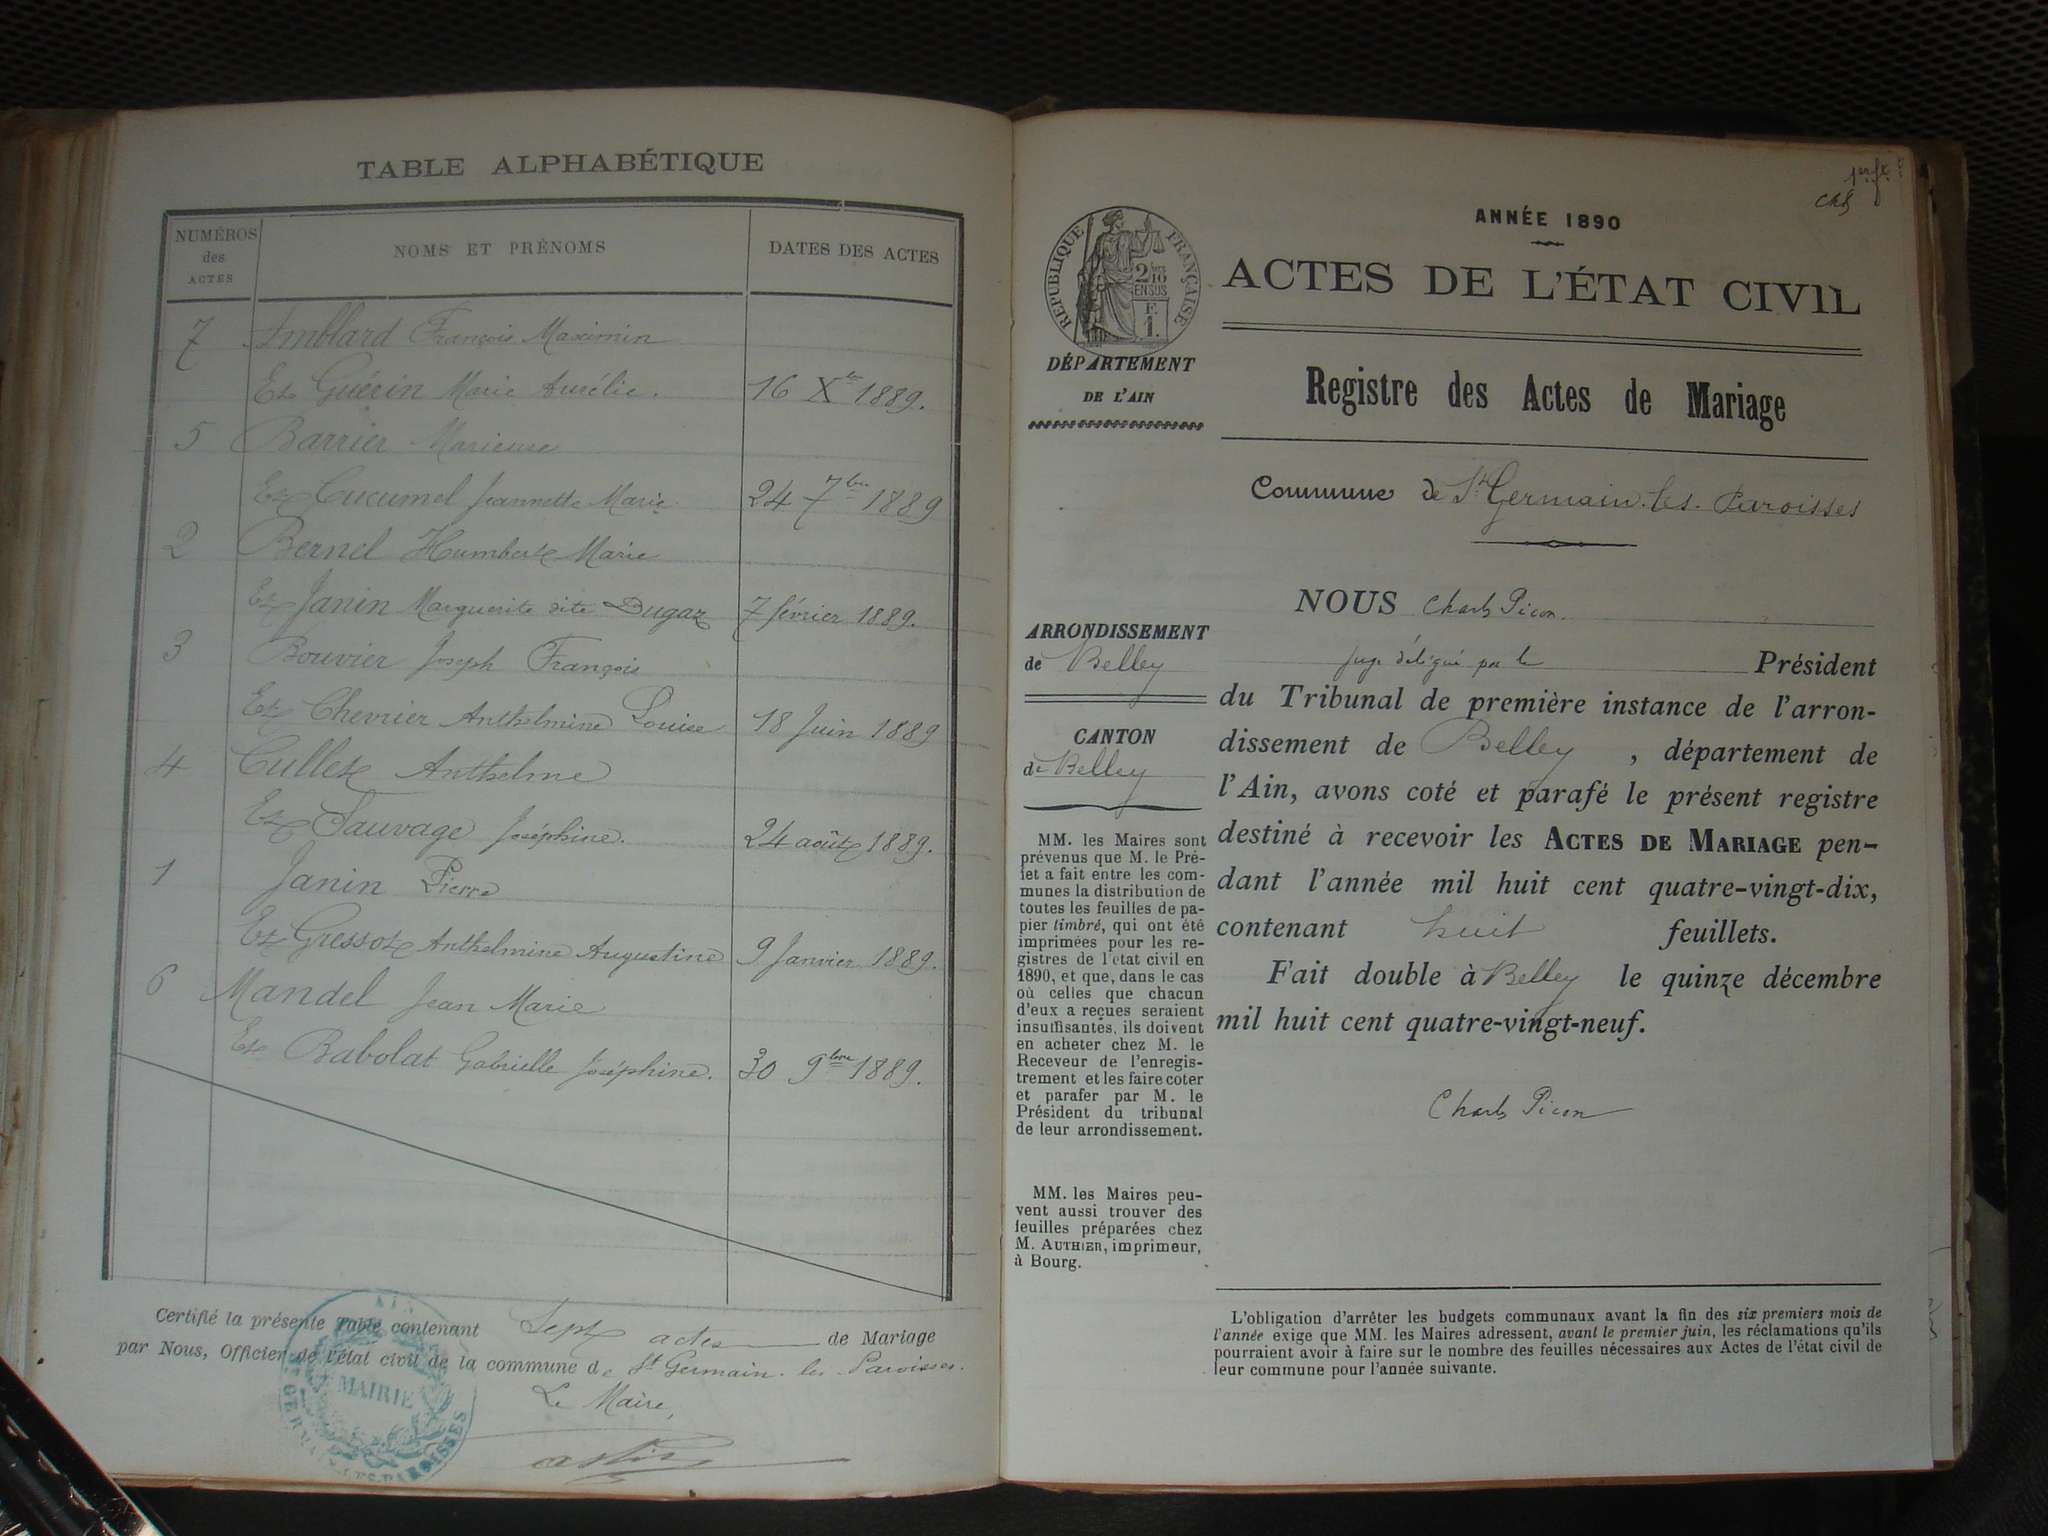 TABLE ALPHABÉTIQUE
NUMÉROS des ACTES
NOMS ET PRÉNOMS
DATES DES ACTES
7 Amblard François Maximin
Et Guérin Marie Aurélie. 16 Xbre 1889.
5 Barrier Marieuse
Et Cucumel Jeannette Marie 24 7bre 1889
2 Bernel Humbert Marie
Et Janin Marguerite dite Dugaz 7 février 1889.
3 Bouvier Joseph François
Et Chevrier Anthelmine Louise 18 Juin 1889
4 Cullet Anthelme
Et Sauvage Joséphine. 24 août 1889.
1 Janin Pierre
Et Gressot Anthelmine Augustine 9 Janvier 1889.
6 Mandel Jean Marie
Et Babolat Gabrielle Joséphine. 30 9bre 1889.
Certifié la présente Table contenant Sept actes de Mariage
par Nous, Officier de l'état civil de la commune de St Germain-les-Paroisses.
Le Maire,
AIN
MAIRIE
ST GERMAIN LES PAROISSES
1er ft
ChP
ANNÉE 1890
ACTES DE L'ÉTAT CIVIL
RÉPUBLIQUE FRANÇAISE
2/10 EN SUS
F. 1.
DÉPARTEMENT
DE L'AIN
Registre des Actes de Mariage
Commune de St Germain-les-Paroisses
ARRONDISSEMENT
de Belley
CANTON
de Belley
MM. les Maires sont
prévenus que M. le Pré-
fet a fait entre les com-
munes la distribution de
toutes les feuilles de pa-
pier timbré, qui ont été
imprimées pour les re-
gistres de l'état civil en
1890, et que, dans le cas
où celles que chacun
d'eux a reçues seraient
insuffisantes, ils doivent
en acheter chez M. le
Receveur de l'enregis-
trement et les faire coter
et parafer par M. le
Président du tribunal
de leur arrondissement.
MM. les Maires peu-
vent aussi trouver des
feuilles préparées chez
M. AUTHIER, imprimeur,
à Bourg.
NOUS Charles Picon
juge délégué par le Président
du Tribunal de première instance de l'arron-
dissement de Belley, département de
l'Ain, avons coté et parafé le présent registre
destiné à recevoir les ACTES DE MARIAGE pen-
dant l'année mil huit cent quatre-vingt-dix,
contenant huit feuillets.
Fait double à Belley le quinze décembre
mil huit cent quatre-vingt-neuf.
Charles Picon
L'obligation d'arrêter les budgets communaux avant la fin des six premiers mois de
l'année exige que MM. les Maires adressent, avant le premier juin, les réclamations qu'ils
pourraient avoir à faire sur le nombre des feuilles nécessaires aux Actes de l'état civil de
leur commune pour l'année suivante.